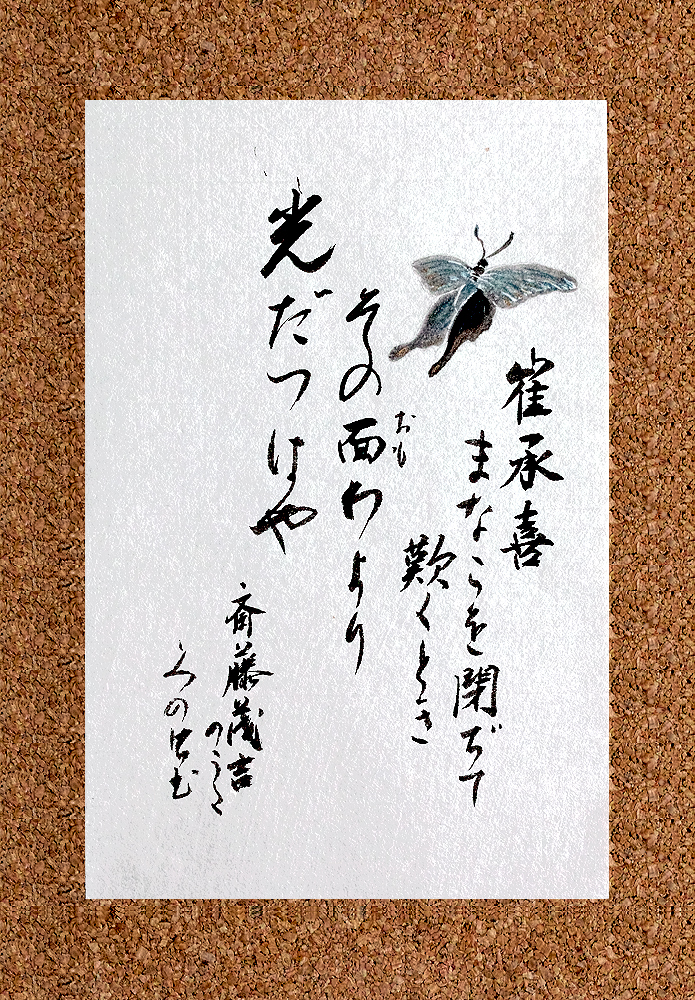 崔承喜
まなこを閉ぢて
歎くとき
おも
その面わより
光だつはや
斎藤茂吉
のうた